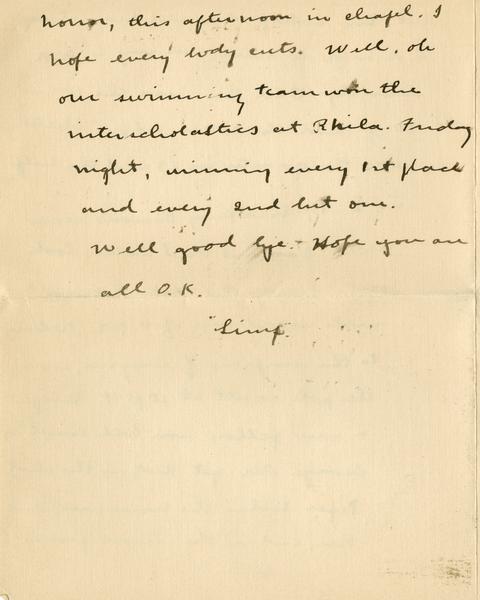 honor, this afternoon in chapel. I
hope every body cuts. Well, oh
our swimming team won the
interscholastics at Phila. Friday
night, winning every 1st place
and every 2nd but one.
Well good bye. Hope you are
all O.K.
Simp.